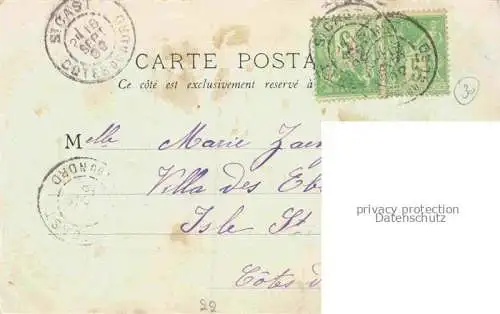 St CAST
CÔTES DU NORD
CARTE POSTA
Ce côté est exclusivement réservé à
3
Melle Marie Zae
Villa des Eb
Isle St
Côtes d
privacy protection
Datenschutz
22